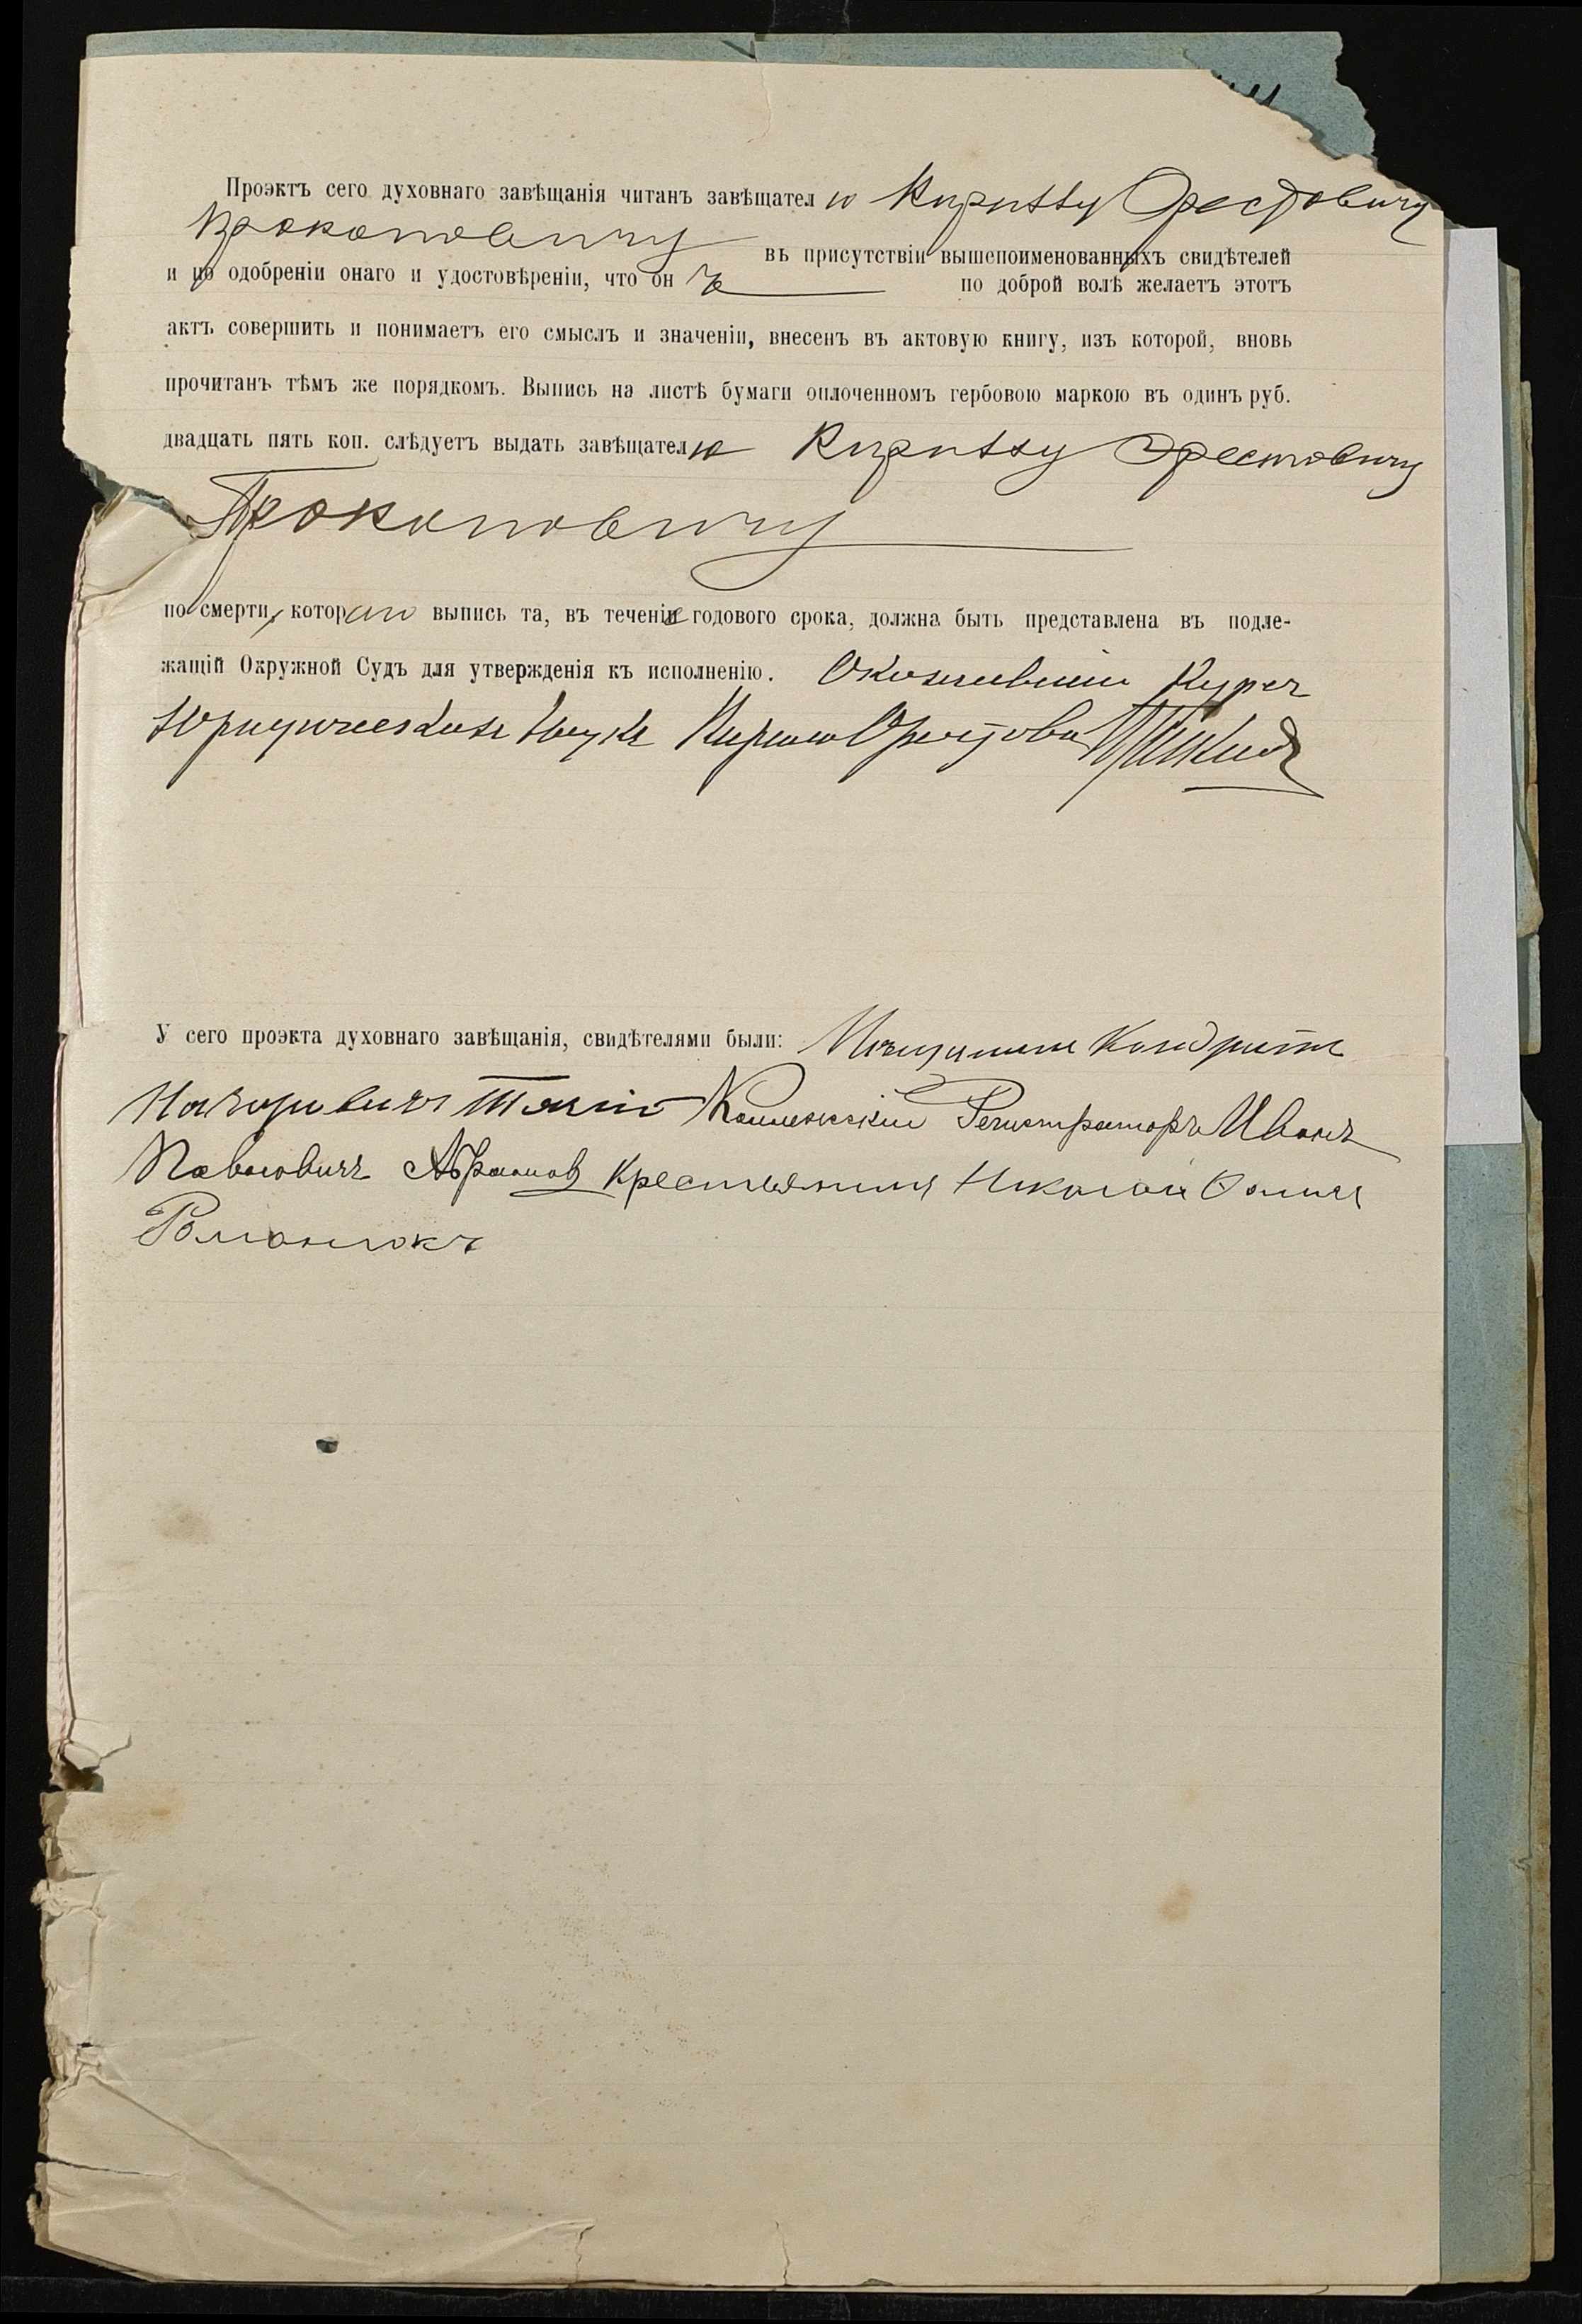 Проэктъ сего духовнаго завѣщанія читанъ завѣщателю Кириллу Орестовичу
Прокоповичу въ присутствіи вышепоименованныхъ свидѣтелей
и по одобреніи онаго и удостовѣреніи, что онъ по доброй волѣ желаетъ этотъ
актъ совершить и понимаетъ его смыслъ и значеніи, внесенъ въ актовую книгу, изъ которой, вновь
прочитанъ тѣмъ же порядкомъ. Выпись на листѣ бумаги оплоченномъ гербовою маркою въ одинъ руб.
двадцать пять коп. слѣдуетъ выдать завѣщателю Кириллу Орестовичу
Прокоповичу
по смерти, котораго выпись та, въ теченіе годового срока, должна быть представлена въ подле-
жащій Окружной Судъ для утвержденія къ исполненію. Окончившій Курсъ
Юридическихъ Наукъ Кириллъ Орестовъ
У сего проэкта духовнаго завѣщанія, свидѣтелями были: Мѣщанинъ Кондратъ
Коллежскій Регистраторъ Иванъ
Павловичъ Абрамов Крестьянинъ Николай Фомичъ
Романюкъ